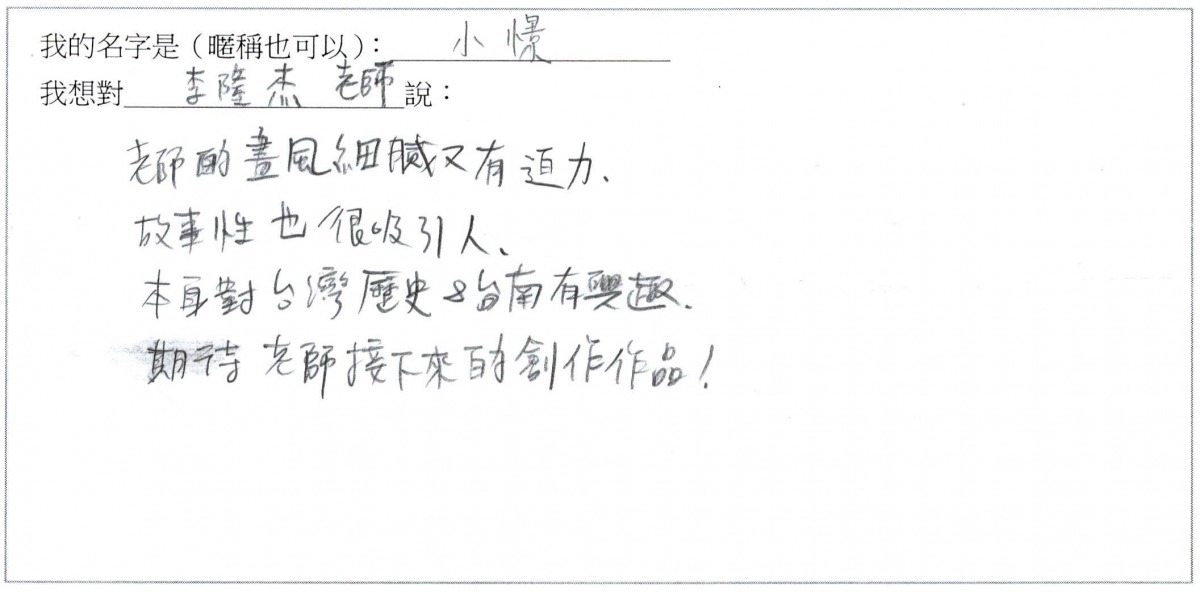 我的名字是（暱稱也可以）：小憬
我想對李隆杰 老師說：
老師的畫風細膩又有迫力、
故事性也很吸引人、
本身對台灣歷史&台南有興趣、
期待老師接下來的創作作品！